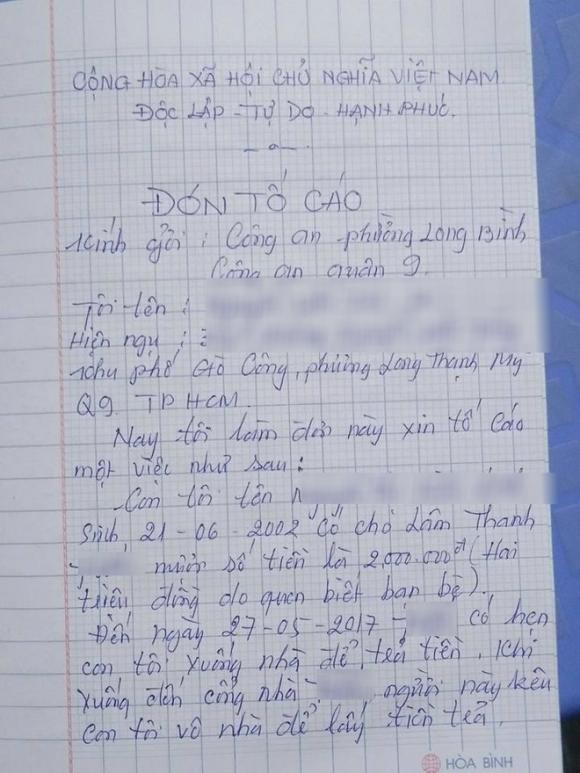 CỘNG HÒA XÃ HỘI CHỦ NGHĨA VIỆT NAM
ĐỘC LẬP - TỰ DO - HẠNH PHÚC.
ĐƠN TỐ CÁO
Kính gửi : Công an phường Long Bình
Công an quận 9.
Tôi tên :
Hiện ngụ :
khu phố Gò Công, phường Long Thạnh Mỹ
Q9. TP HCM.
Nay tôi làm đơn này xin tố cáo
một việc như sau :
Con tôi tên
Sinh, 21-06-2002 Có cho Lâm Thanh
mượn số tiền là 2.000.000đ (Hai
triệu đồng do quen biết bạn bè).
Đến ngày 27-05-2017 có hẹn
con tôi xuống nhà để trả tiền. Khi
xuống đến cổng nhà người này kêu
con tôi vô nhà để lấy tiền trả.
HÒA BÌNH